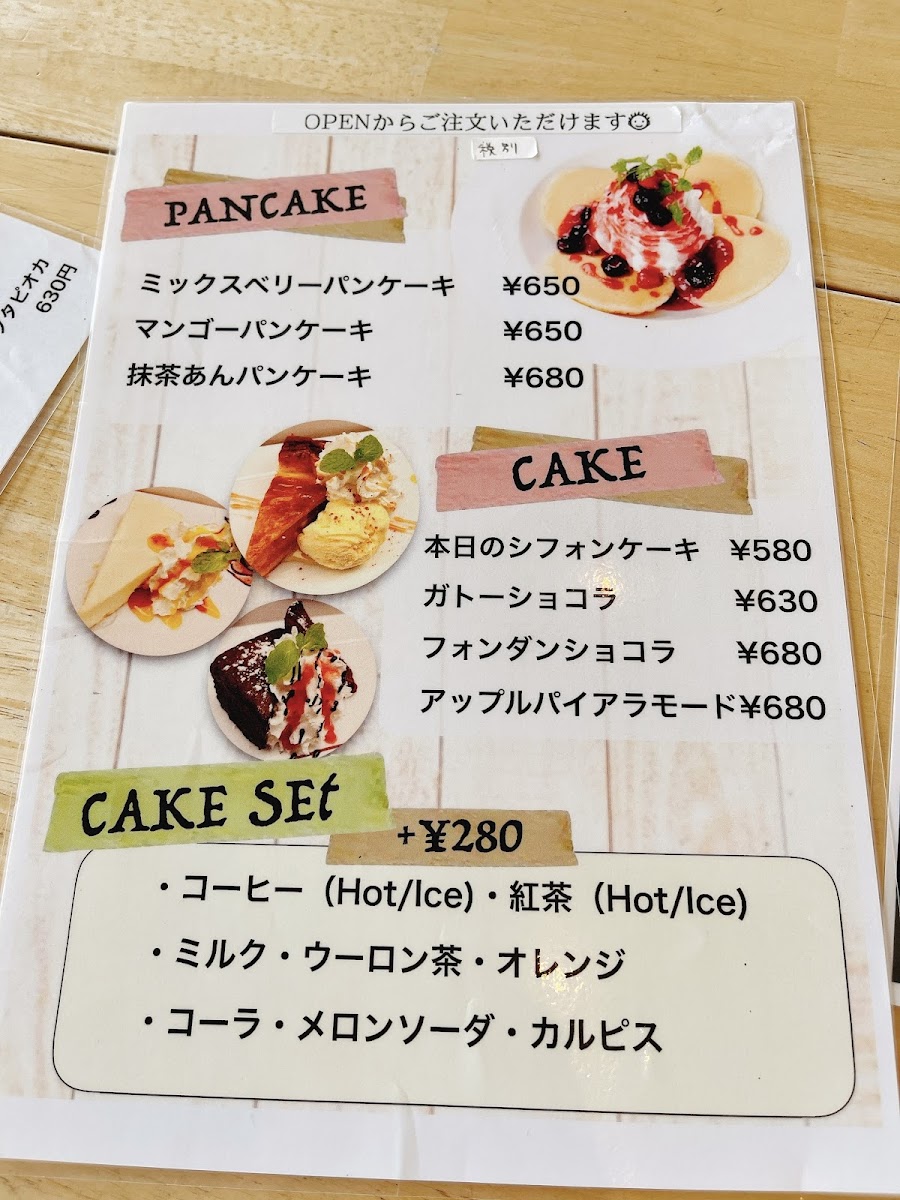 OPENからご注文いただけます
税別
PANCAKE
ミックスベリーパンケーキ ¥650
マンゴーパンケーキ ¥650
抹茶あんパンケーキ ¥680
タピオカ
630円
CAKE
本日のシフォンケーキ ¥580
ガトーショコラ ¥630
フォンダンショコラ ¥680
アップルパイアラモード¥680
CAKE SEt
+¥280
・コーヒー（Hot/Ice）・紅茶（Hot/Ice）
・ミルク・ウーロン茶・オレンジ
・コーラ・メロンソーダ・カルピス